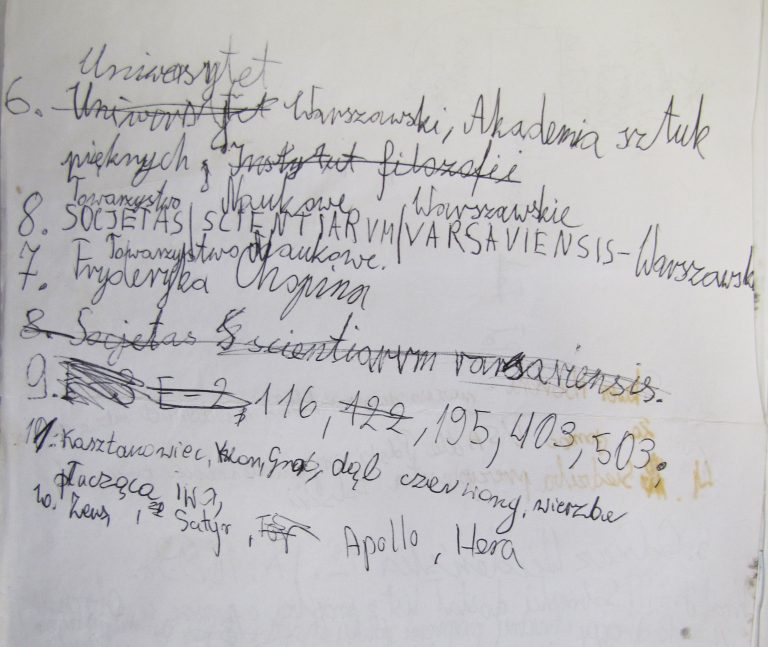 Uniwersytet
6. Uniwersytet Warszawski, Akademia sztuk
pięknych, Instytut filozofii
Towarzystwo Naukowe Warszawskie
8. SOCJETAS/SCIENTJARVM/VARSAVIENSIS-Warszawski
Towarzystwo Naukowe.
7. Fryderyka Chopina
8. Socjetas Sscientiarvm varsaviensis.
9. E-2, 116, 122, 195, 403, 503.
Kasztanowiec, klon, grab, dąb czerwony, wierzba
płacząca,
10. Zeus, Satyr, Apollo, Hera